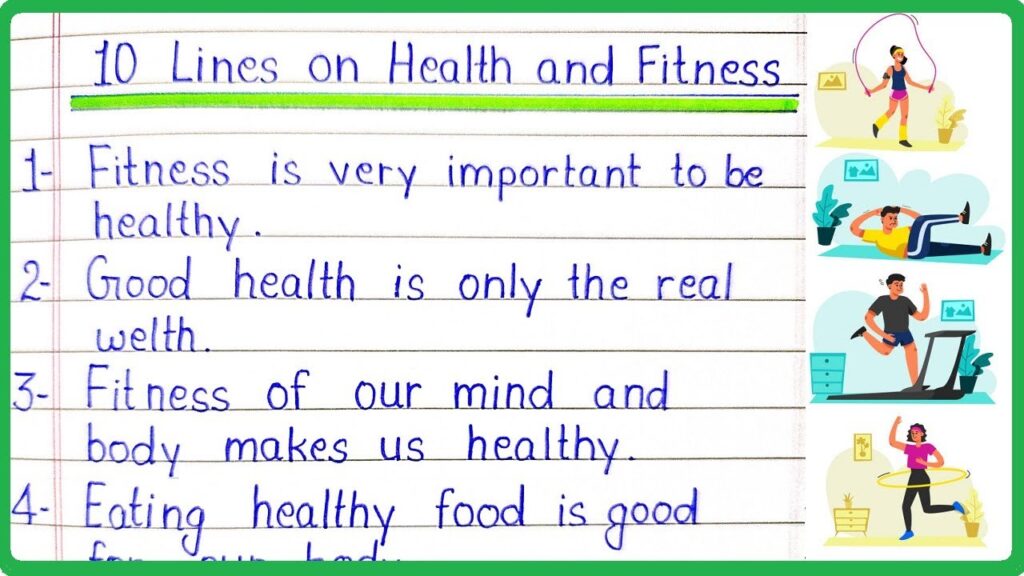 10 Lines on Health and Fitness
1- Fitness is very important to be
healthy.
2- Good health is only the real
welth.
3- Fitness of our mind and
body makes us healthy.
4- Eating healthy food is good
for our body